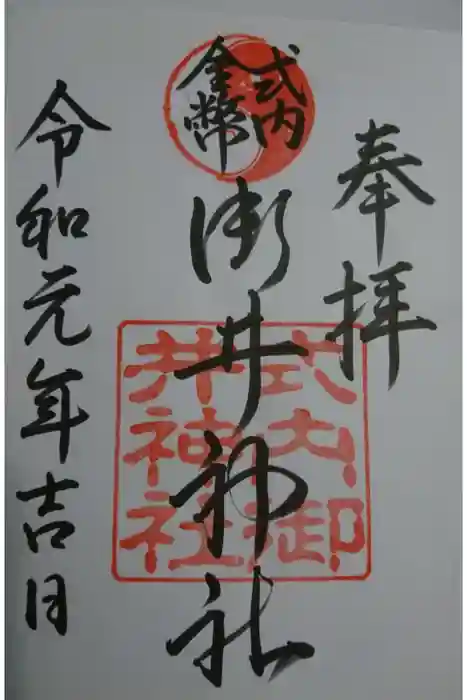 奉拝
式内
金幣
御井神社
式内御
井神社
令和元年吉日